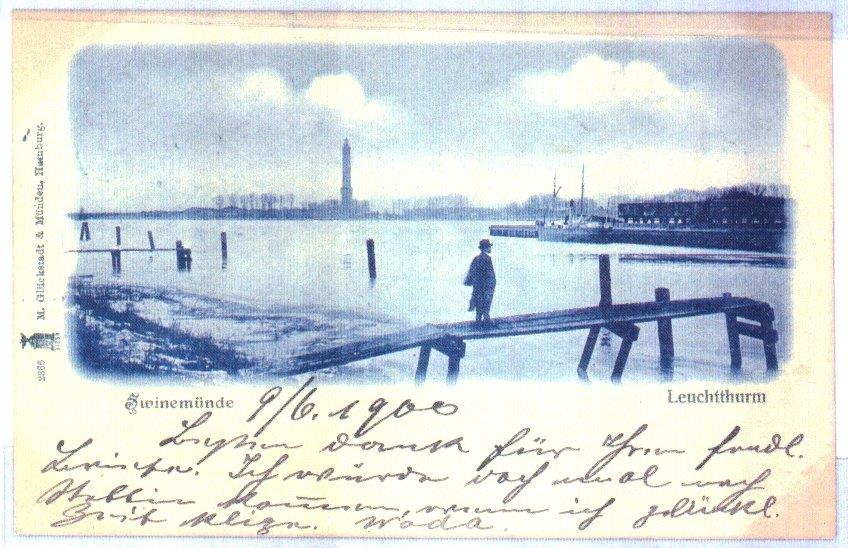 M. Glückstadt & Münden, Hamburg.
2866
Swinemünde
Leuchtthurm
9/6. 1900
Besten Dank für Ihren frndl.
Ich würde noch mal nach
Stettin kommen, wenn ich
Woda.